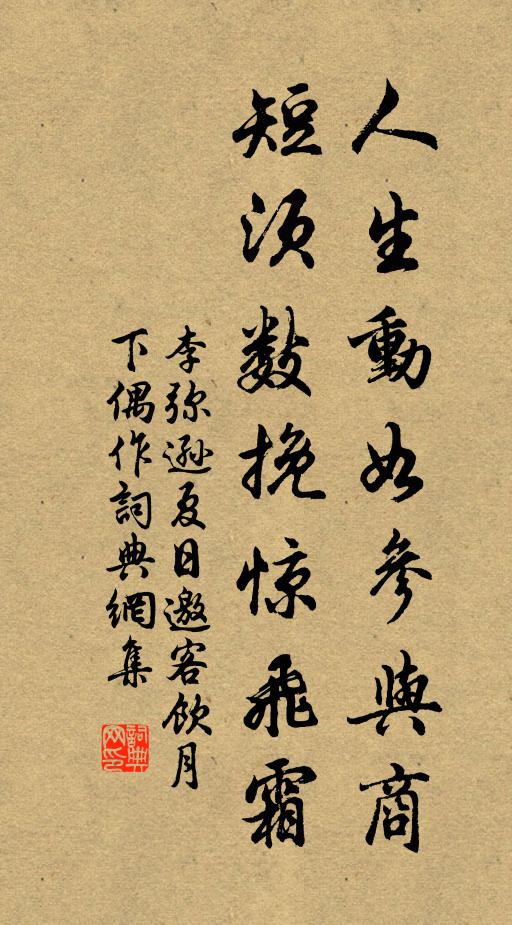 人生動如參與商
短须数挽惊飛霜
李弥遜夏日邀客飲月
下偶作詞典網集
詞典
网印